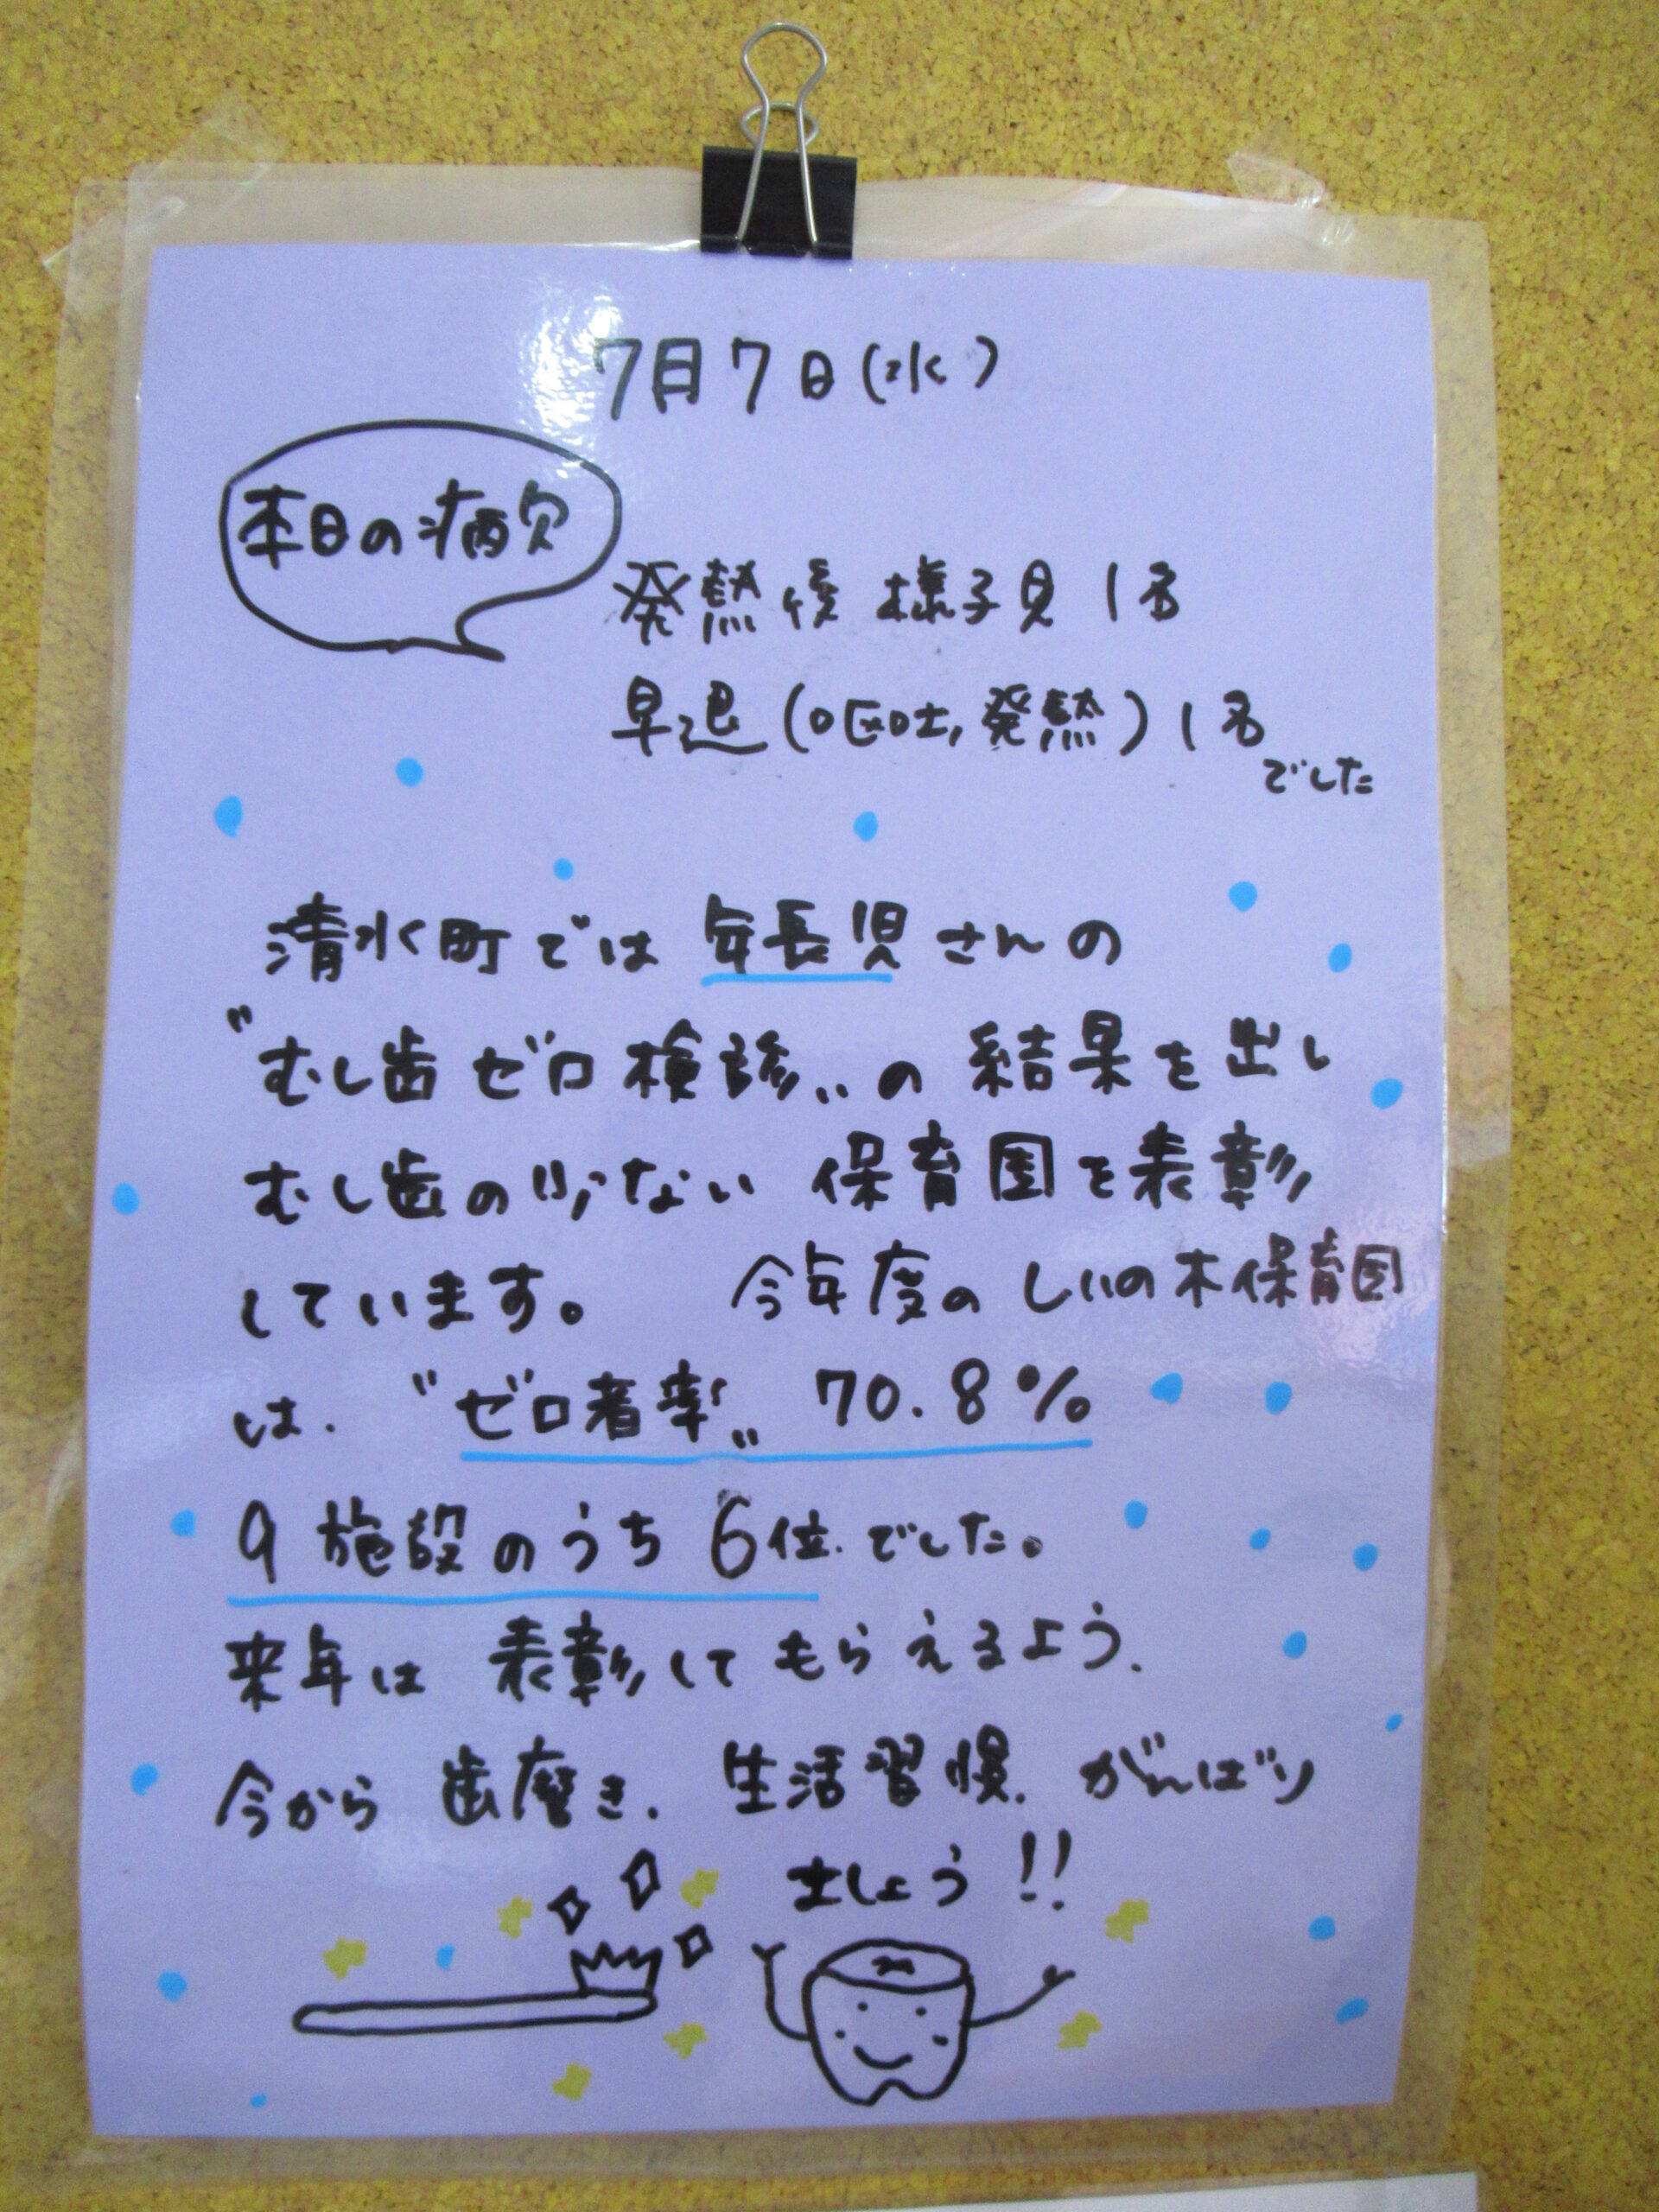 7月7日(水)
本日の病欠
発熱後 様子見 1名
早退(嘔吐,発熱)1名
でした
清水町では 年長児さんの
〝むし歯ゼロ検診〟の 結果を出し
むし歯の少ない 保育園を表彰
しています。 今年度の しいの木保育園
は、〝ゼロ者率〟 70.8%
9 施設のうち 6位 でした。
来年は 表彰して もらえるよう、
今から 歯磨き、生活習慣、がんばり
ましょう!!